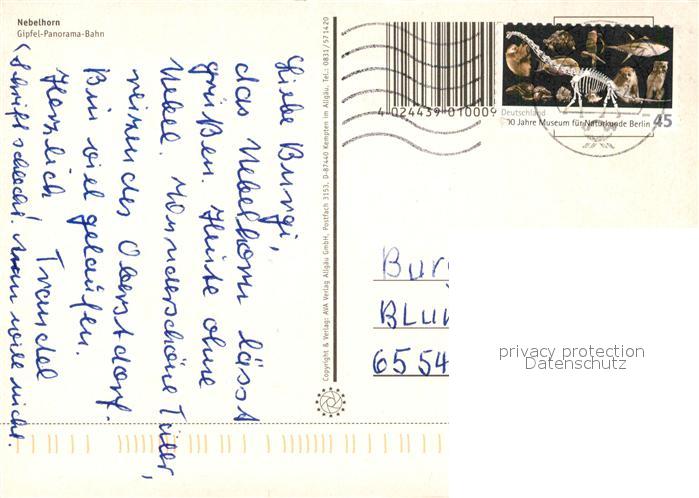 Nebelhorn
Gipfel-Panorama-Bahn
Liebe Burgi,
das Nebelhorn lässt
grüßen. Heute ohne
Nebel. Wunderschöne Täler,
reizendes Oberstdorf.
Bin viel gelaufen.
Herzlich Traudel
(Schrift schlecht. Mann will nicht.
Copyright & Verlag: AVA Verlag Allgäu GmbH, Postfach 3153, D-87440 Kempten im Allgäu, Tel.: 0831/571420
4 024439 010009
Deutschland
Jahre Museum für Naturkunde Berlin 45
Bur
BLU
6554
privacy protection
Datenschutz